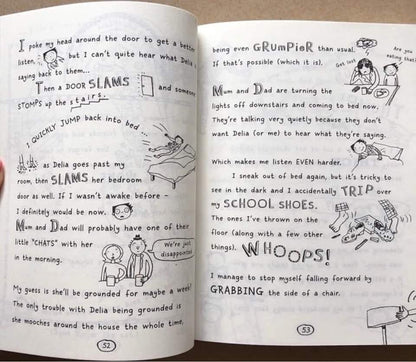 I poke my head around the door to get a better
listen, but I can't quite hear what Delia
saying back to them...
Then a DOOR SLAMS and someone
STOMPS up the stairs.
I QUICKLY JUMP back into bed...
as Delia goes past my
room, then SLAMS her bedroom
door as well. If I wasn't awake before -
I definitely would be now.
Mum and Dad will probably have one of their
little "CHATS" with her
in the morning.
We're just
disappointed
My guess is she'll be grounded for maybe a week?
The only trouble with Delia being grounded is
she mooches around the house the whole time,
52
being even GRUMPIER than usual.
If that's possible (which it is).
Are you
eating that?
Get lost
Mum and Dad are turning the
lights off downstairs and coming to bed now.
They're talking very quietly because they don't
want Delia (or me) to hear what they're saying.
Which makes me listen EVEN harder.
I sneak out of bed again, but it's tricky to
see in the dark and I accidentally TRIP over
my SCHOOL SHOES.
The ones I've thrown on the
floor (along with a few other
things). WHOOPS!
I manage to stop myself falling forward by
GRABBING the side of a chair.
53